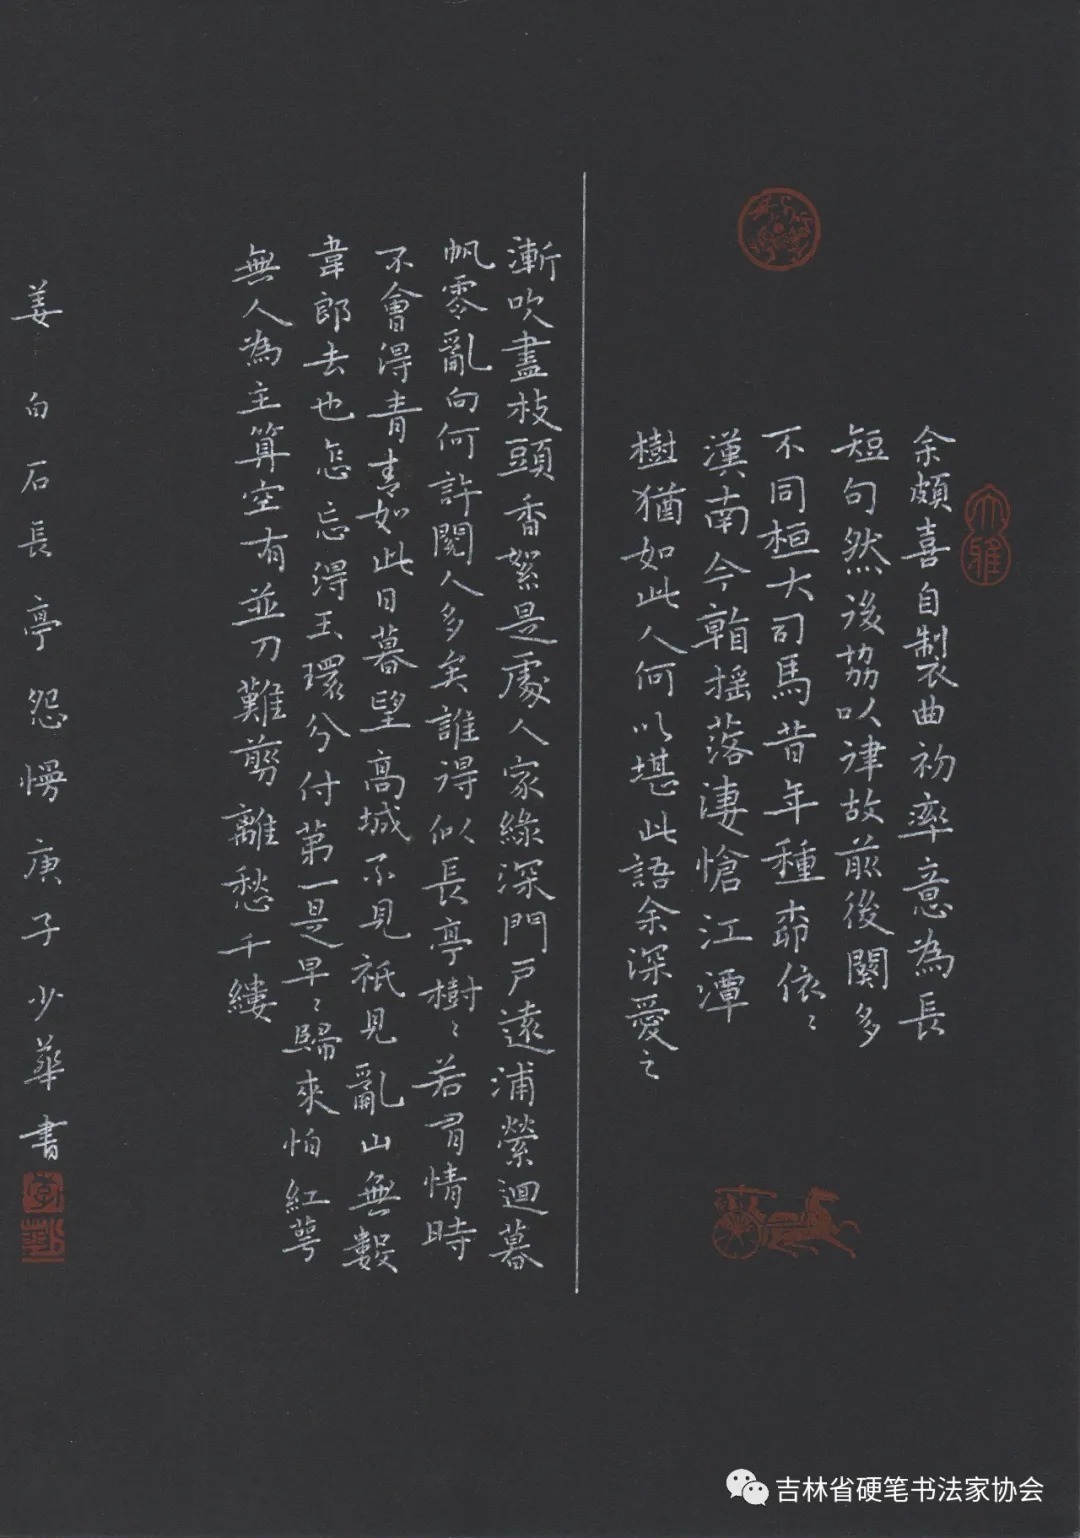 余頗喜自製曲初率意為長
短句然後協以律故前後闋多
不同桓大司馬昔年種柳依〻
漢南今看搖落淒愴江潭
樹猶如此人何以堪此語余深愛之
大雅
漸吹盡枝頭香絮是處人家綠深門戶遠浦縈迴暮
帆零亂向何許閱人多矣誰得似長亭樹〻若有情時
不會得青青如此日暮望高城不見衹見亂山無數
韋郎去也怎忘得玉環分付第一是早〻歸來怕紅萼
無人為主算空有並刀難剪離愁千縷
姜白石長亭怨慢庚子少華書
吉林省硬笔书法家协会